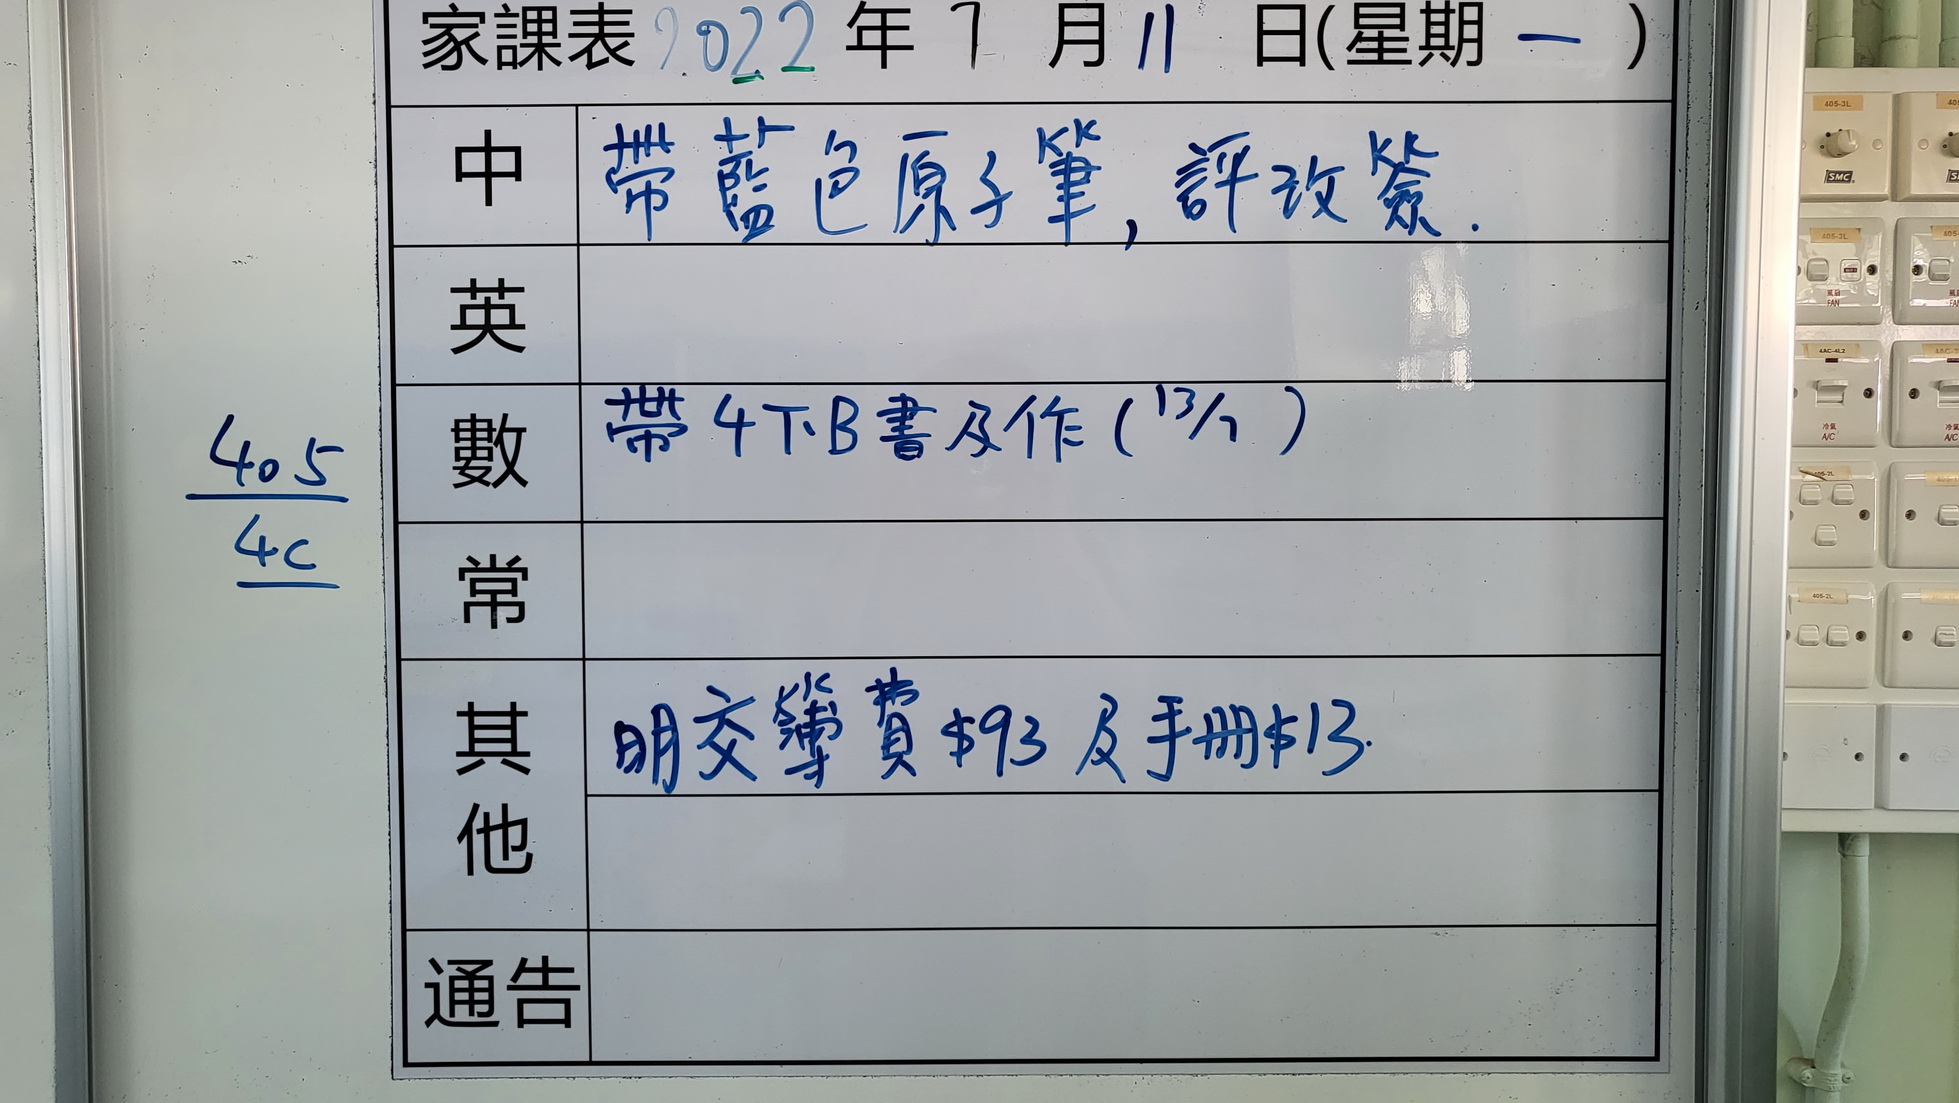 家課表 2022 年 7 月 11 日(星期 一 )
中 帶藍色原子筆,評改簽.
英
數 帶4下B書及作(13/7)
405
4C
常
其他 明交簿費$93及手冊$13.
通告
405-3L
SMC
405-3L
風扇
FAN
4AC-4L2
冷氣
A/C
405-2L